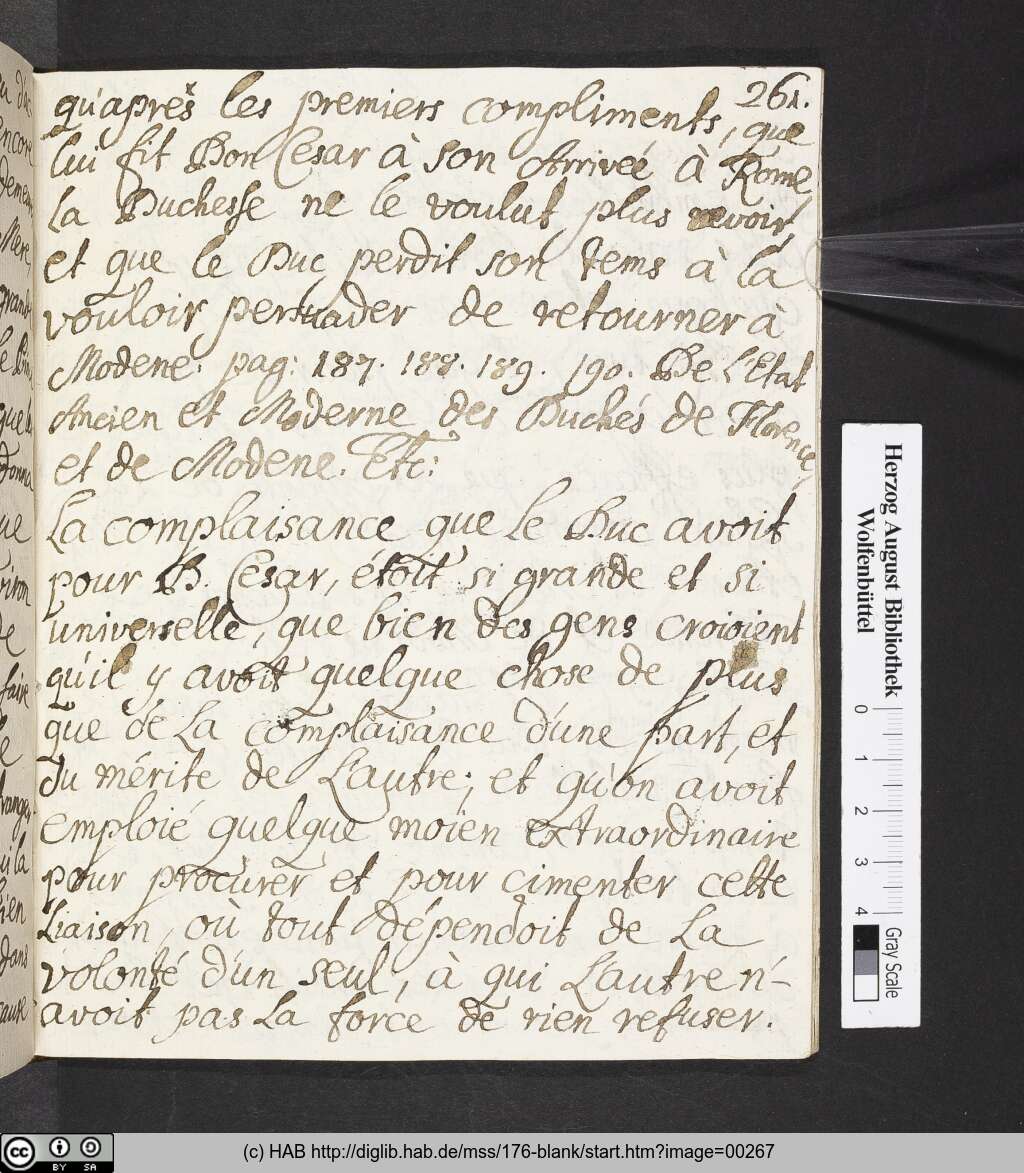 261.
qu'après les premiers compliments, que
lui fit Don Cesar à son Arrivée à Rome,
La Duchesse ne le voulut plus revoir,
et que le Duc perdit son tems à la
vouloir persuader de retourner à
Modene. pag: 187. 188. 189. 190. De L'Etat
Ancien et Moderne des Duchés de Florence,
et de Modene. Etc:
La complaisance que le Duc avoit
pour D. Cesar, étoit si grande et si
universelle, que bien des gens croioient
qu'il y avoit quelque chose de plus
que de La complaisance d'une part, et
du mérite de L'autre; et qu'on avoit
emploié quelque moïen extraordinaire
pour procurer et pour cimenter cette
Liaison, où tout dépendoit de La
volonté d'un seul, à qui L'autre n'-
avoit pas La force de rien refuser.
encore
Mere,
grande
que
donna
de
faire
le
bien
dans
Herzog August Bibliothek
Wolfenbüttel
0 1 2 3 4
Gray Scale
cc BY SA
(c) HAB http://diglib.hab.de/mss/176-blank/start.htm?image=00267